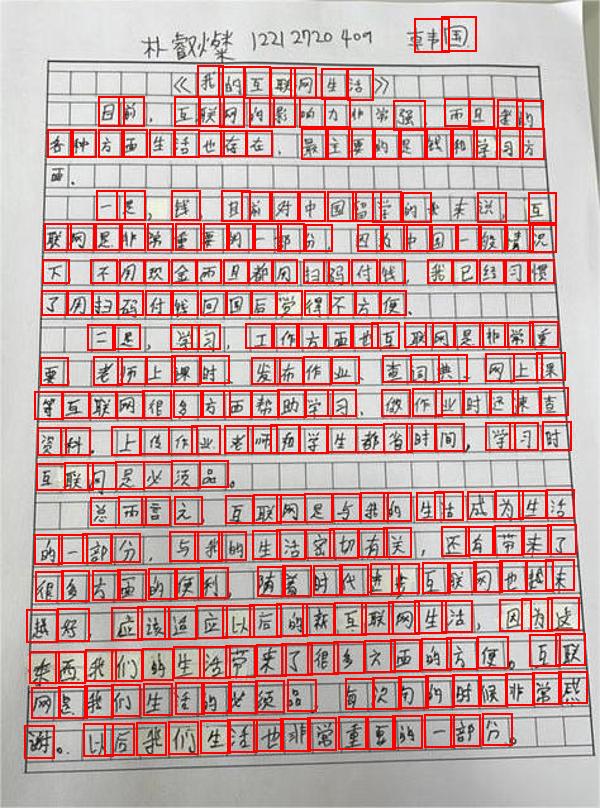 朴叡燦 12212720409 韩国
《我的互联网生活》
目前，互联网的影响力非常强，而且老的
各种方面生活也存在，最主要的是钱和学习方
面。
一是，钱，目前对中国留学的我来说，互
联网是非常重要的一部分，因为中国一般情况
下，不用现金而且都用扫码付钱，我已经习惯
了用扫码付钱回国后觉得不方便。
二是，学习，工作方面也互联网是非常重
要，老师上课时，发布作业、查词典、网上课
等互联网很多方面帮助学习，做作业时还来查
资料。上传作业老师和学生都省时间，学习时
互联网是必须品。
总而言之，互联网是与我的生活成为生活
的一部分，与我的生活密切有关，还有带来了
很多方面的便利，随着时代进步互联网也越来
越好，应该适应以后的新互联网生活，因为这
东西我们的生活带来了很多方面的方便。互联
网是我们生活的必须品，每次句的时候非常感
谢。以后我们生活也非常重要的一部分。